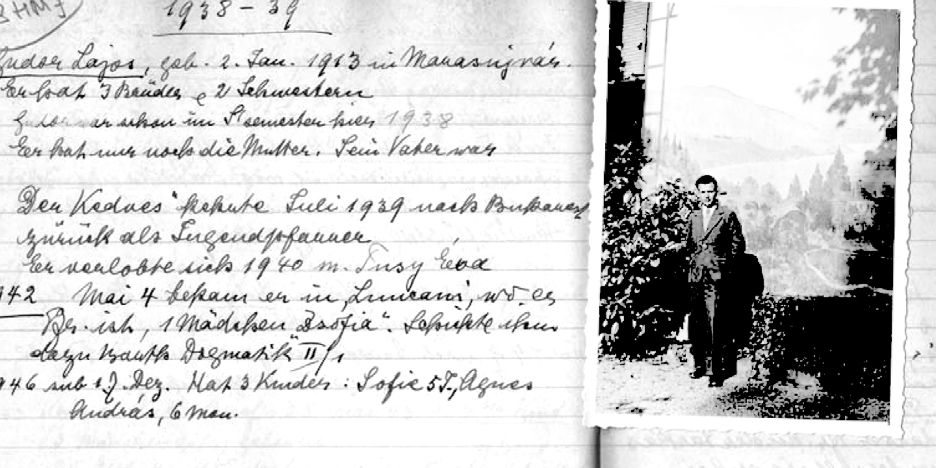 BHMJ
1938-39
Gudor Lajos, geb. 2. Jan. 1913 in Marosujvár.
Er hat 3 Brüder e 2 Schwestern
Gudor war schon im St semester hier 1938
Er hat nur noch die Mutter. Sein Vater war
Der "Kedves" kehrte Juli 1939 nach Bukarest
zurück als Jugendpfarrer
Er verlobte sich 1940 m. Tusy Éva
1942 Mai 4 bekam er in Luncani, wo er
Pfr. ist, 1 Mädchen "Zsófia". Schickte ihm
dazu Barths Dogmatik II/1
1946 sub 17. Dez. Hat 3 Kinder: Sofie 5J., Agnes
András, 6 Mon.